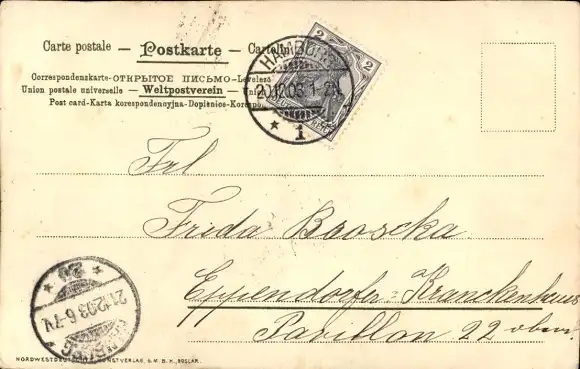 Carte postale — Postkarte — Cartolin
Correspondenzkarte-ОТКРЫТОЕ ПИСЬМО-Levelező
Union postale universelle — Weltpostverein —
Post card-Karta korespondencyjna-Dopisnice-Korespo
2 2
HAMBURG
20.12.03.1-2N.
* 1 *
Frl
Frida Brooscka
Eppendorfer-Kranckenhaus
Pavillon 22 oben
* 20 *
21.12.03 6-7V.
HAMBURG
NORDWESTDEUTSCHER KUNSTVERLAG, G.M.B.H., GOSLAR.